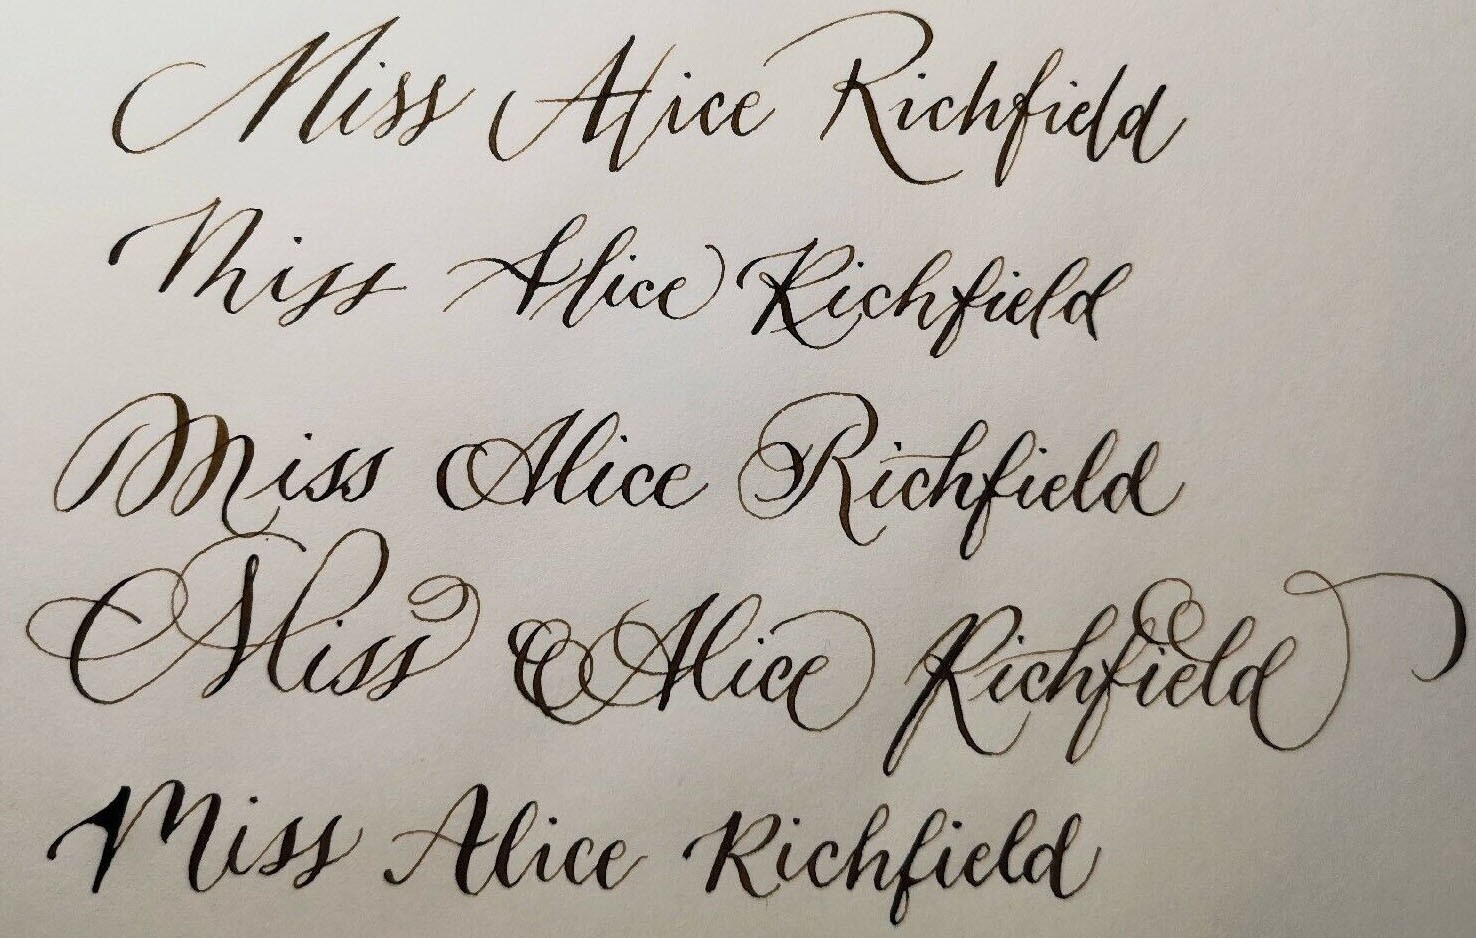 Miss Alice Richfield
Miss Alice Richfield
Miss Alice Richfield
Miss Alice Richfield
Miss Alice Richfield